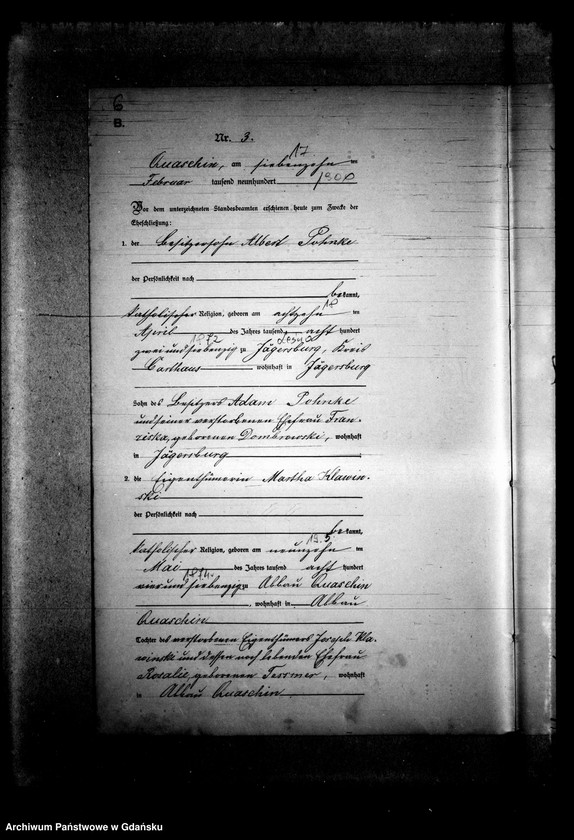 6
B.
Nr. 3.
17
Quaschin, am siebenzehn ten
Februar tausend neunhundert 1900
Vor dem unterzeichneten Standesbeamten erschienen heute zum Zwecke der
Eheschließung:
1. der Besitzersohn Albert Pohnke
der Persönlichkeit nach
bekannt,
katholischer Religion, geboren am achtzehn 18 ten
April 1872 des Jahres tausend acht hundert
zwei und siebenzig zu Jägersburg, Kreis
Carthaus wohnhaft in Jägersburg
Sohn des Besitzers Adam Pohnke
und seiner verstorbenen Ehefrau Fran-
ziska, geborenen Dombrowski, wohnhaft
in Jägersburg
2. die Eigenthümerin Martha Klawin-
ski
der Persönlichkeit nach
bekannt,
katholischer Religion, geboren am neunzehn 19.5 ten
Mai 1874 des Jahres tausend acht hundert
vier und siebenzig zu Abbau Quaschin
, wohnhaft in Abbau
Quaschin
Tochter des verstorbenen Eigenthümers Joseph Kla-
winski und dessen noch lebenden Ehefrau
Rosalie, geborenen Tessmer, wohnhaft
in Abbau Quaschin
Archiwum Państwowe w Gdańsku